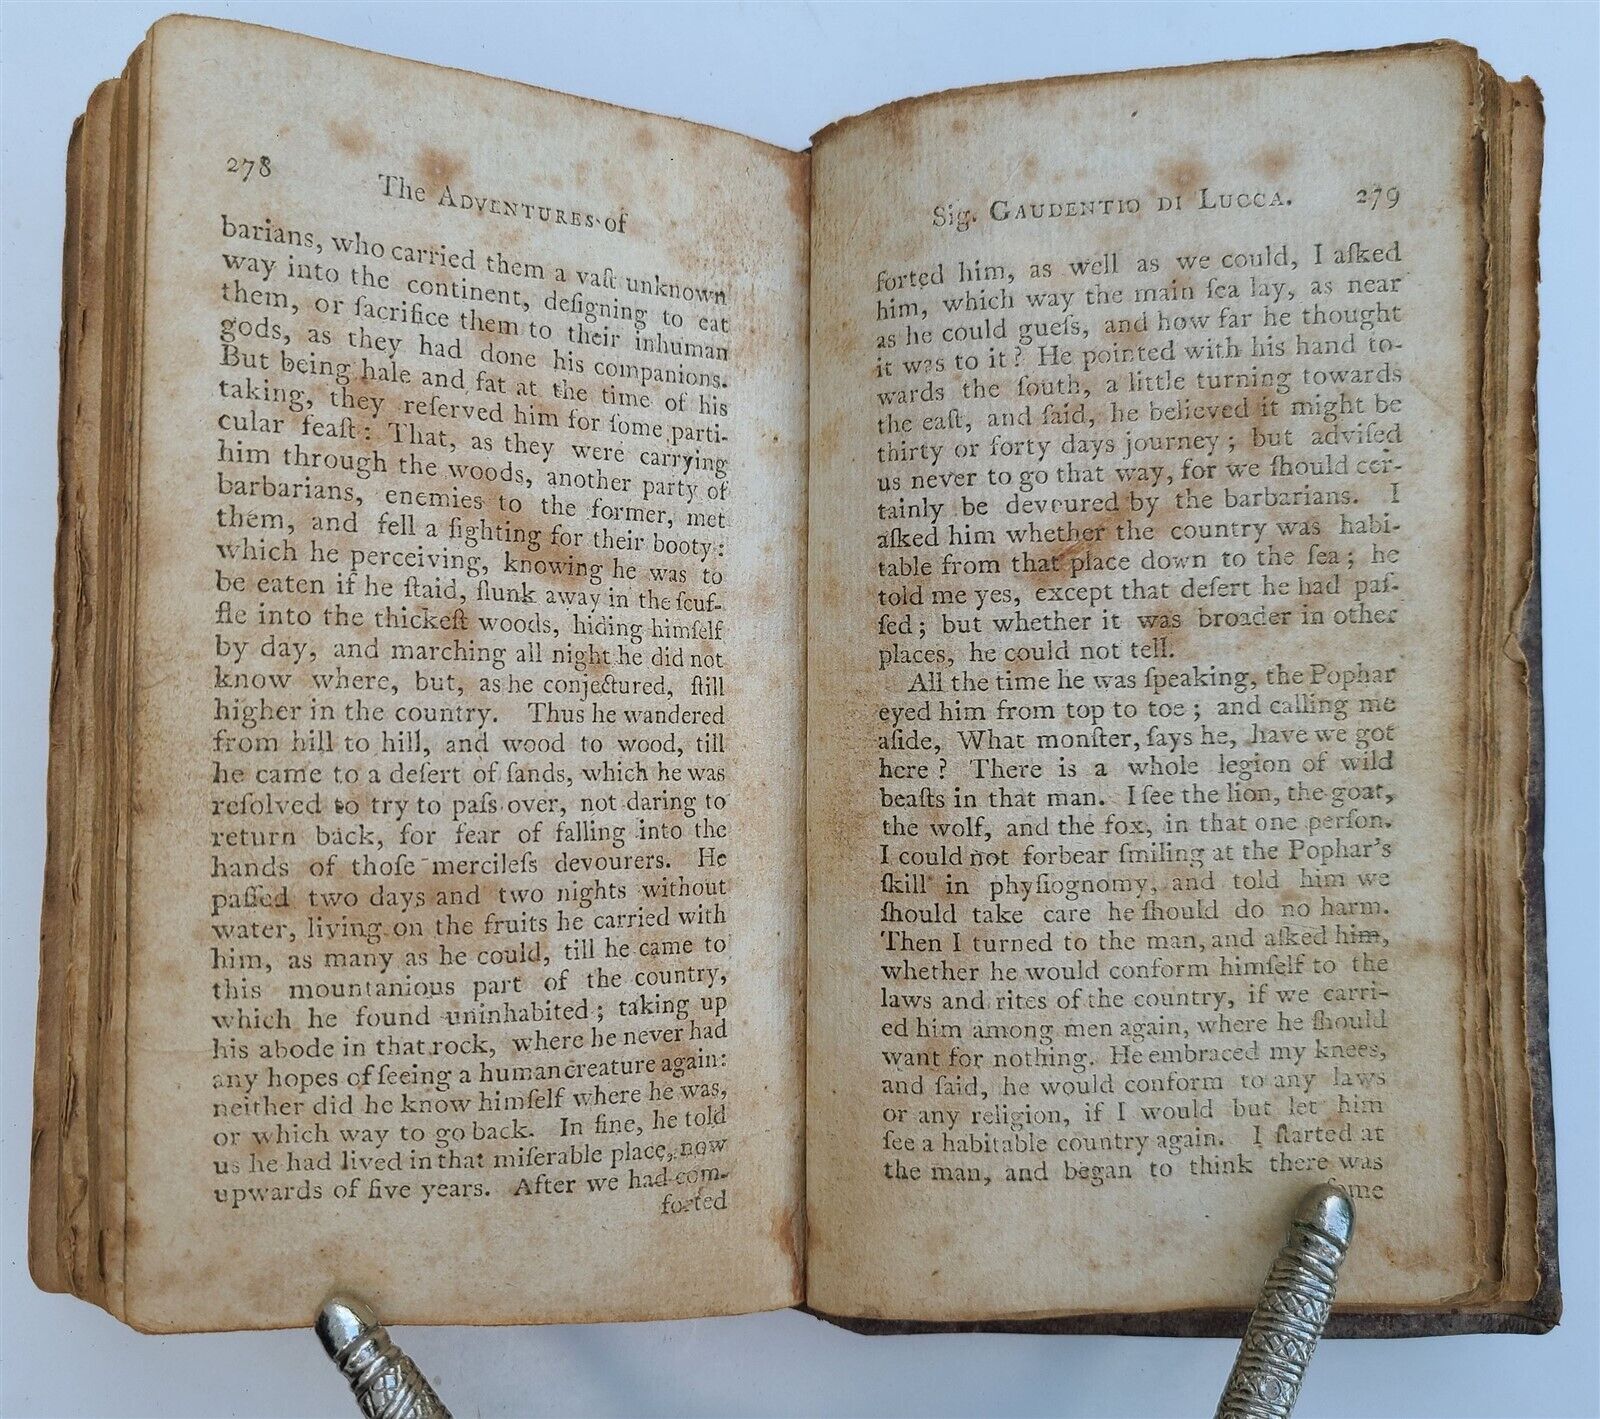 278
The ADVENTURES of
barians, who carried them a vaſt unknown
way into the continent, deſigning to eat
them, or ſacrifice them to their inhuman
gods, as they had done his companions.
But being hale and fat at the time of his
taking, they reſerved him for ſome parti-
cular feaſt: That, as they were carrying
him through the woods, another party of
barbarians, enemies to the former, met
them, and fell a fighting for their booty:
which he perceiving, knowing he was to
be eaten if he ſtaid, ſlunk away in the ſcuf-
fle into the thickeſt woods, hiding himſelf
by day, and marching all night he did not
know where, but, as he conjectured, ſtill
higher in the country. Thus he wandered
from hill to hill, and wood to wood, till
he came to a deſert of ſands, which he was
reſolved to try to paſs over, not daring to
return back, for fear of falling into the
hands of thoſe mercileſs devourers. He
paſſed two days and two nights without
water, living on the fruits he carried with
him, as many as he could, till he came to
this mountanious part of the country,
which he found uninhabited; taking up
his abode in that rock, where he never had
any hopes of ſeeing a human creature again:
neither did he know himſelf where he was,
or which way to go back. In fine, he told
us he had lived in that miſerable place, now
upwards of five years. After we had com-
forted
Sig. GAUDENTIO DI LUCCA. 279
forted him, as well as we could, I aſked
him, which way the main ſea lay, as near
as he could gueſs, and how far he thought
it was to it? He pointed with his hand to-
wards the ſouth, a little turning towards
the eaſt, and ſaid, he believed it might be
thirty or forty days journey; but adviſed
us never to go that way, for we ſhould cer-
tainly be devoured by the barbarians. I
aſked him whether the country was habi-
table from that place down to the ſea; he
told me yes, except that deſert he had paſ-
ſed; but whether it was broader in other
places, he could not tell.
All the time he was ſpeaking, the Pophar
eyed him from top to toe; and calling me
aſide, What monſter, ſays he, have we got
here? There is a whole legion of wild
beaſts in that man. I ſee the lion, the goat,
the wolf, and the fox, in that one perſon.
I could not forbear ſmiling at the Pophar's
ſkill in phyſiognomy, and told him we
ſhould take care he ſhould do no harm.
Then I turned to the man, and aſked him,
whether he would conform himſelf to the
laws and rites of the country, if we carri-
ed him among men again, where he ſhould
want for nothing. He embraced my knees,
and ſaid, he would conform to any laws
or any religion, if I would but let him
ſee a habitable country again. I ſtarted at
the man, and began to think there was
ſome